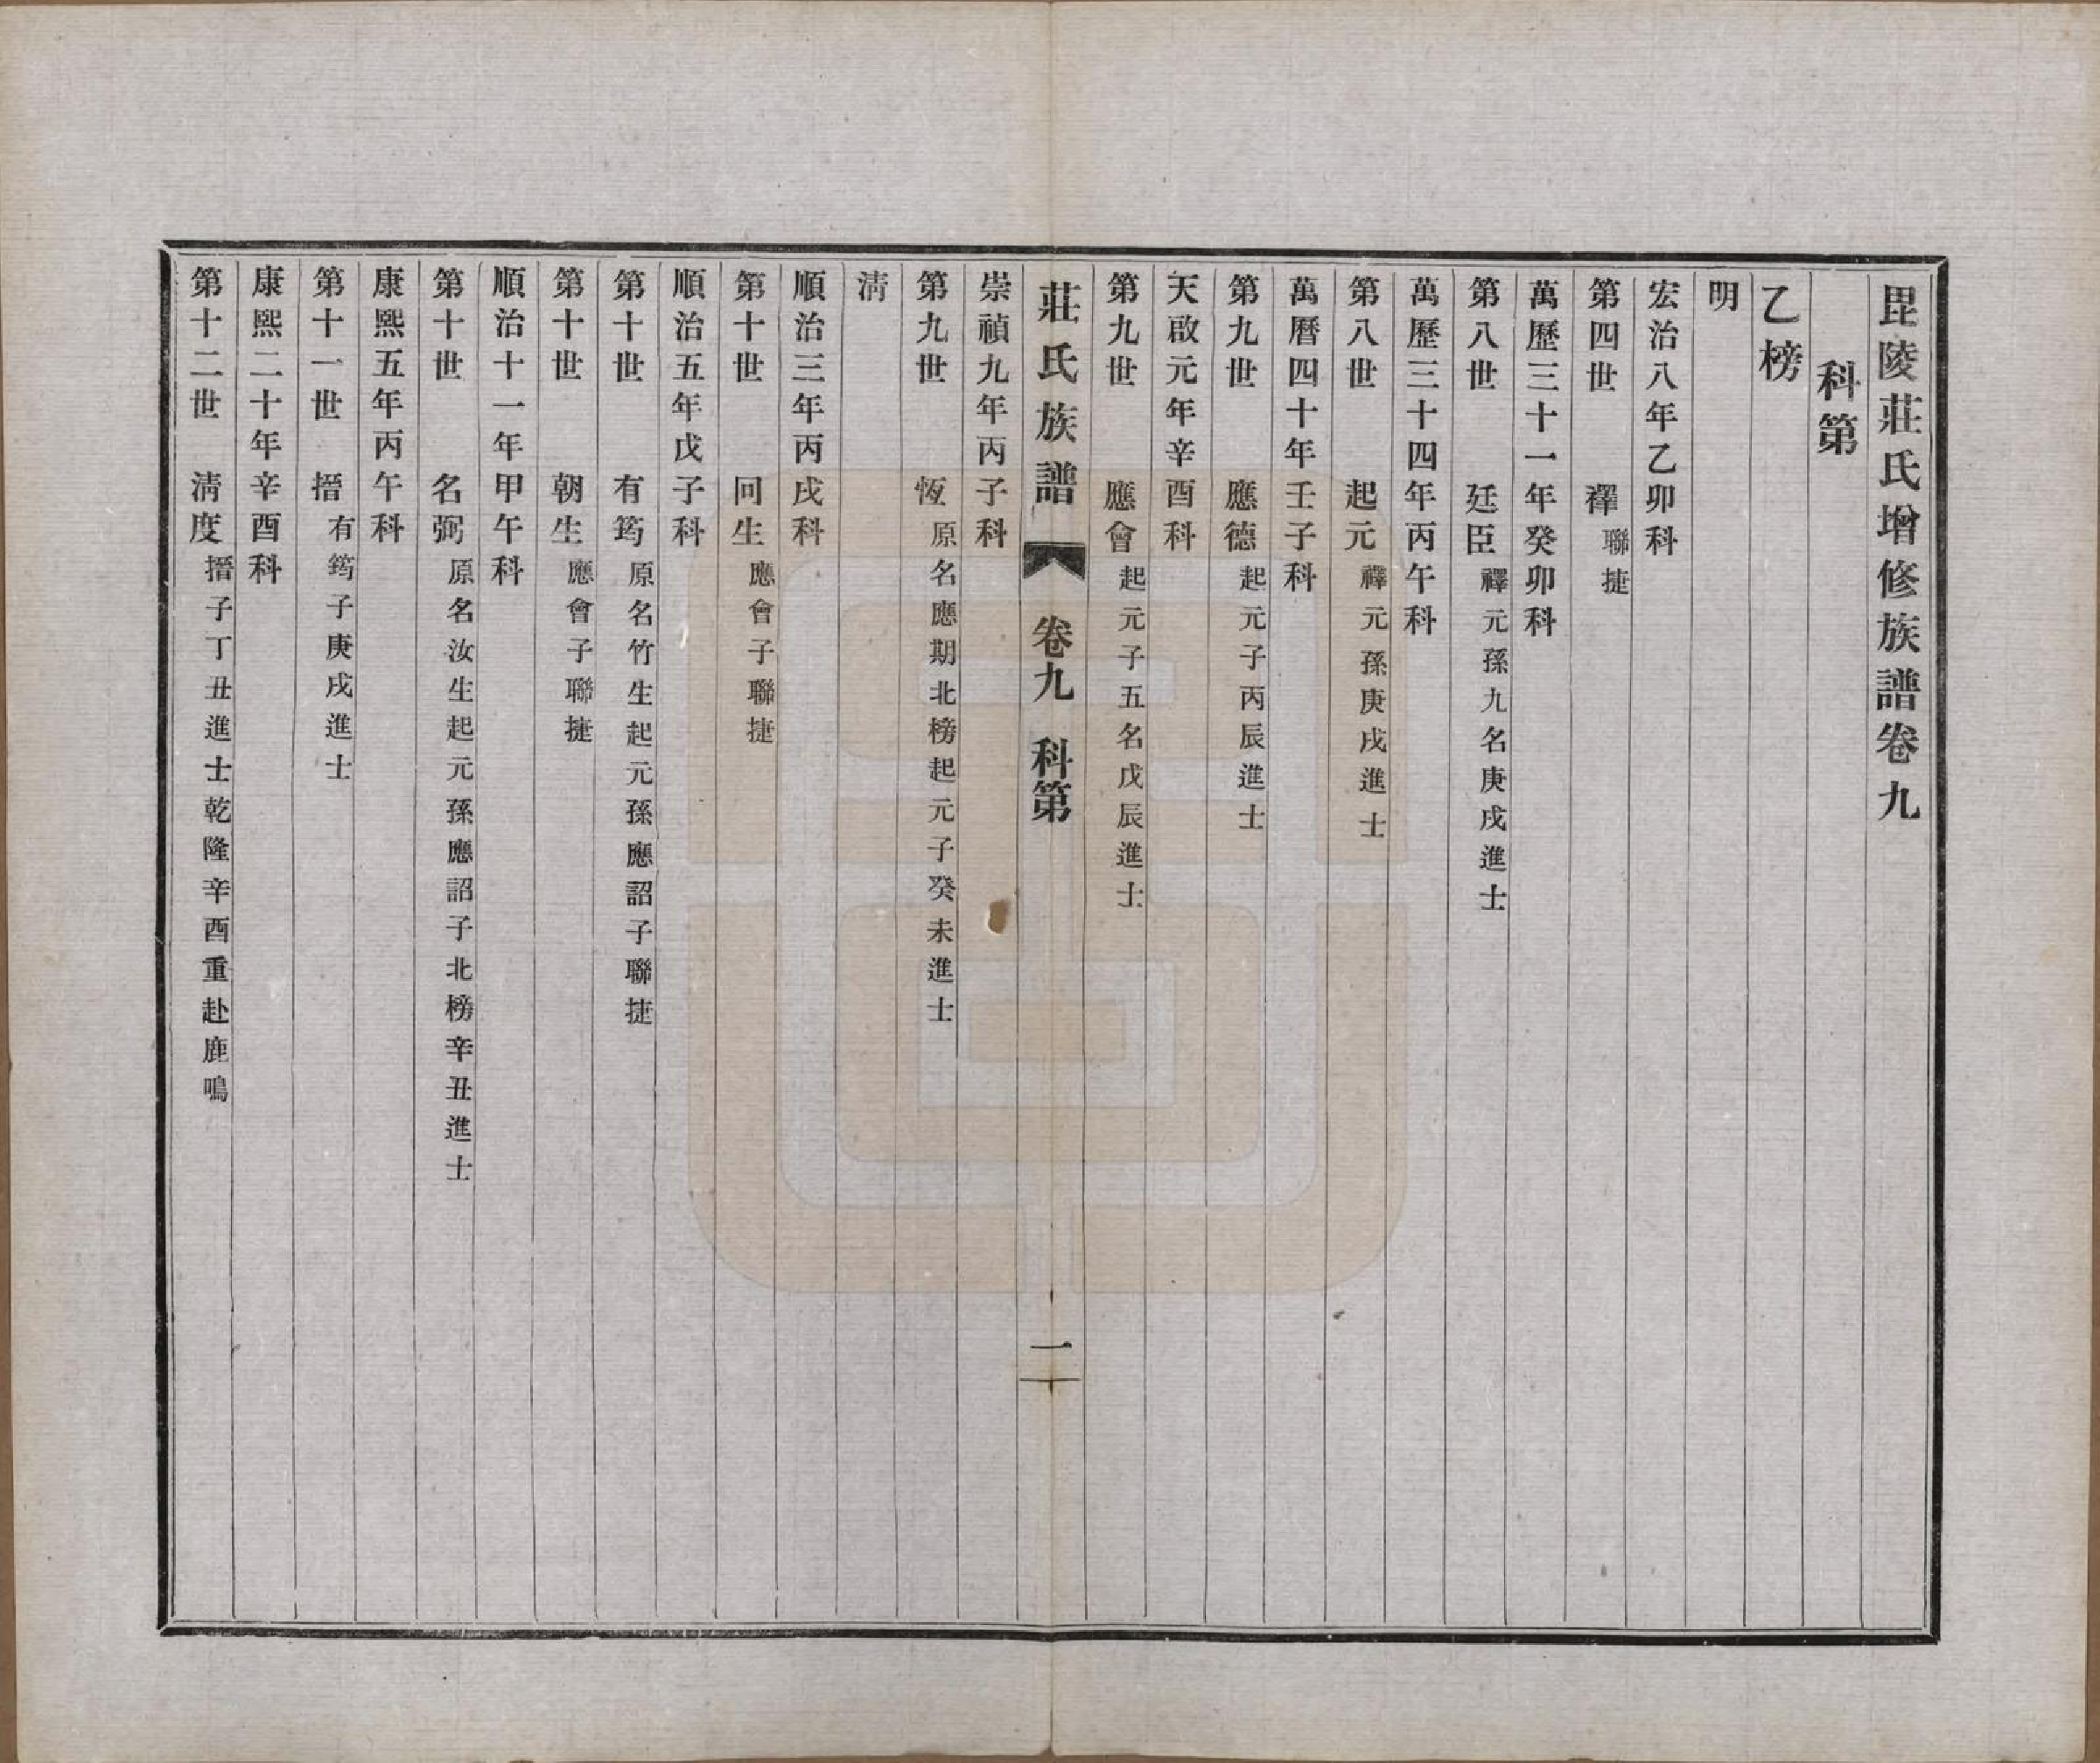 毘陵莊氏增修族譜卷九
科第
乙榜
明
宏治八年乙卯科
第四世 襗 聯捷
萬歷三十一年癸卯科
第八世 廷臣 襗元孫九名庚戌進士
萬歷三十四年丙午科
第八世 起元 襗元孫庚戌進士
萬曆四十年壬子科
第九世 應德 起元子丙辰進士
天啟元年辛酉科
第九世 應會 起元子五名戊辰進士
莊氏族譜 卷九 科第 一
崇禎九年丙子科
第九世 恆 原名應期北榜起元子癸未進士
淸
順治三年丙戌科
第十世 回生 應會子聯捷
順治五年戊子科
第十世 有筠 原名竹生起元孫應詔子聯捷
第十世 朝生 應會子聯捷
順治十一年甲午科
第十世 名弼 原名汝生起元孫應詔子北榜辛丑進士
康熙五年丙午科
第十一世 搢 有筠子庚戌進士
康熙二十年辛酉科
第十二世 淸度 搢子丁丑進士乾隆辛酉重赴鹿鳴